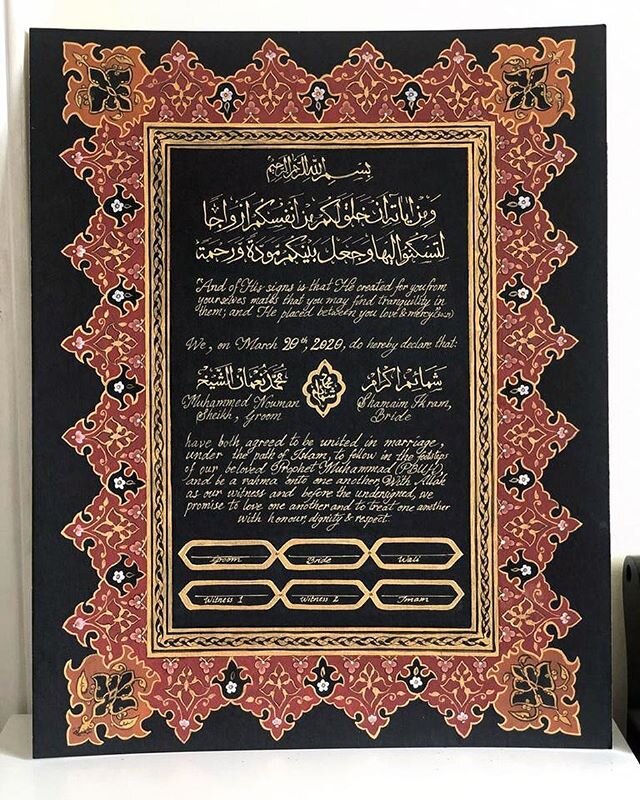 بسم الله الرحمن الرحيم
ومن اياته ان خلق لكم من انفسكم ازواجا
لتسكنوا اليها وجعل بينكم مودة ورحمة
"And of His signs is that He created for you from
yourselves mates that you may find tranquility in
them; and He placed between you love & mercy"
We, on March 20th, 2020, do hereby declare that:
محمد نعمان الشيخ
شمائم اكرام
Muhammed Nouman
Sheikh, Groom
Shamaim Ikram,
Bride
have both agreed to be united in marriage,
under the path of Islam, to follow in the footsteps
of our beloved Prophet Muhammad (PBUH),
and be a rahma onto one another. With Allah
as our witness and before the undersigned, we
promise to love one another and to treat one another
with honour, dignity & respect.
Groom Bride Wali
Witness 1 Witness 2 Imam